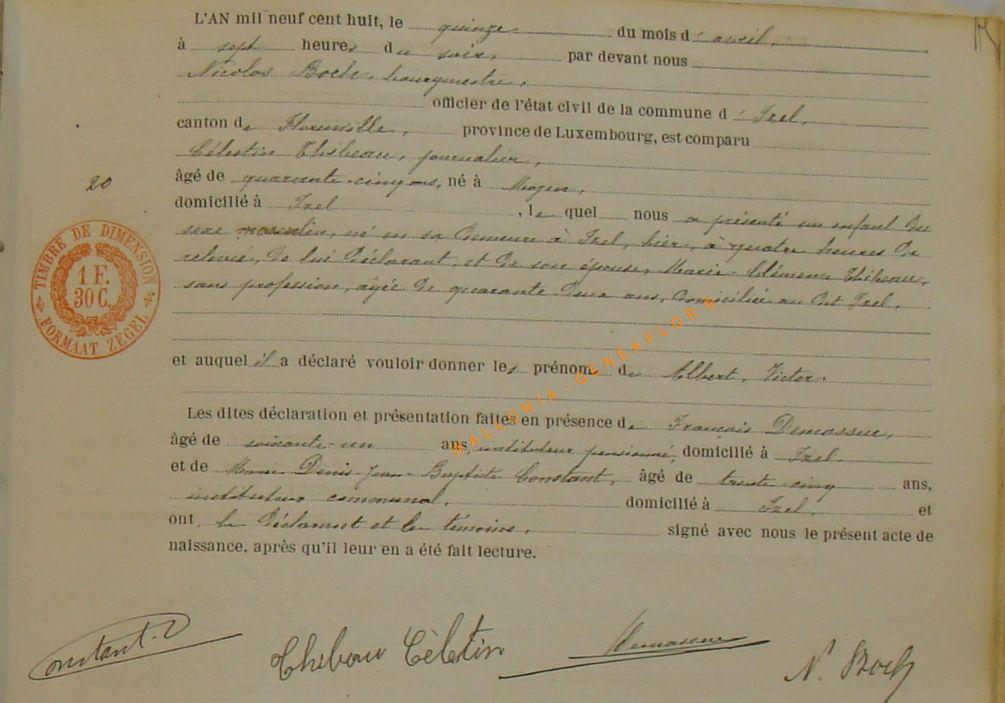 L'AN mil neuf cent huit, le quinze du mois d'avril,
à sept heures du soir, par devant nous
Nicolas Boch, bourgmestre,
officier de l'état civil de la commune d'Izel,
canton de Florenville, province de Luxembourg, est comparu
Célestin Thibeau, journalier,
âgé de quarante-cinq ans, né à Moyen,
20
domicilié à Izel, lequel nous a présenté un enfant du
sexe masculin, né en sa demeure à Izel, hier, à quatre heures de
relevée, de lui déclarant, et de son épouse, Marie-Clémence Thibeau,
sans profession, âgée de quarante-deux ans, domiciliée au dit Izel,
TIMBRE DE DIMENSION
1 F.
30 C.
FORMAAT ZEGEL
et auquel il a déclaré vouloir donner les prénoms de Albert, Victor.
WALLONIA-GENEAFLORE
Les dites déclaration et présentation faites en présence de François Demasseur,
âgé de soixante-un ans, instituteur pensionné, domicilié à Izel
et de Denis Jean-Baptiste Constant, âgé de trente-cinq ans,
instituteur communal, domicilié à Izel, et
ont, le déclarant et les témoins, signé avec nous le présent acte de
naissance, après qu'il leur en a été fait lecture.
Constant. D
Thibeau Céléstin
Demasseur
N. Boch